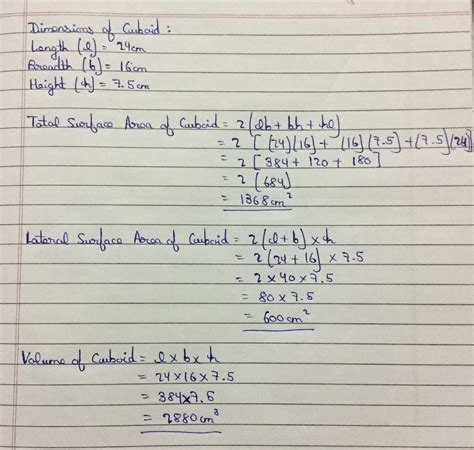 Dimensions of Cuboid :
Length (l) = 24cm
Breadth (b) = 16cm
Height (h) = 7.5cm
Total Surface Area of Cuboid = 2(lb + bh + hl)
= 2 [(24)(16) + (16)(7.5) + (7.5)(24)]
= 2 [384 + 120 + 180]
= 2 (684)
= 1368cm²
Lateral Surface Area of Cuboid = 2(l+b) × h
= 2(24 + 16) × 7.5
= 2 × 40 × 7.5
= 80 × 7.5
= 600cm²
Volume of Cuboid = l × b × h
= 24×16×7.5
= 384×7.5
= 2880cm³